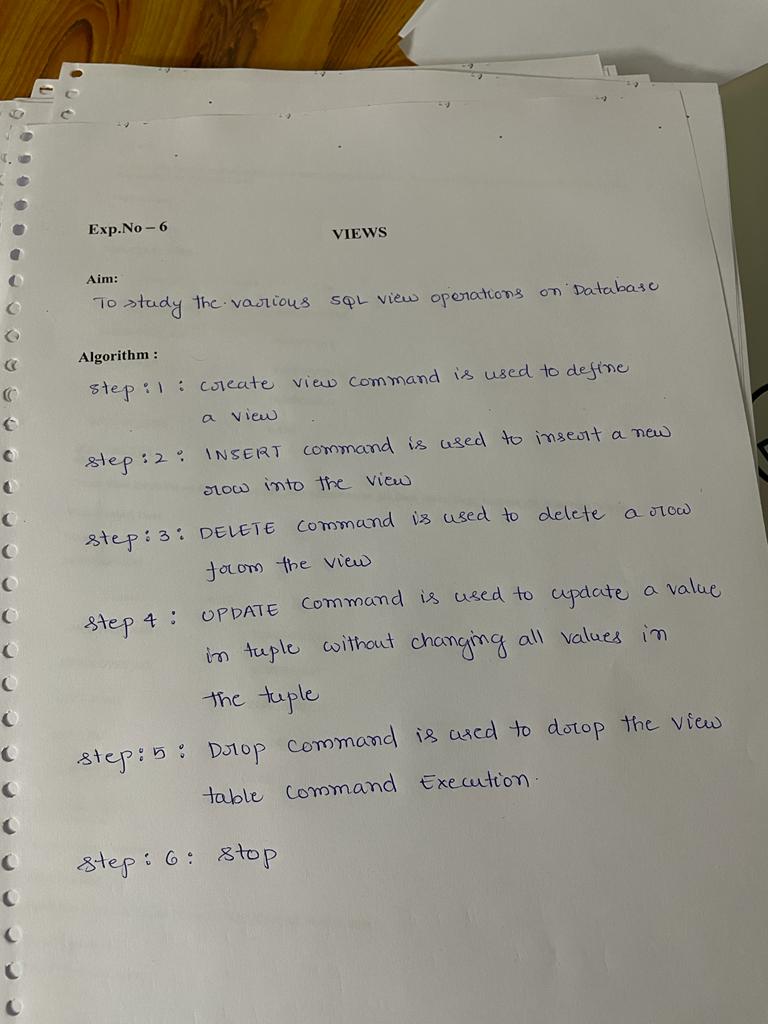 Exp.No – 6
VIEWS
Aim:
To study the various SQL view operations on Database
Algorithm :
Step : 1 : Create view command is used to define
a view
Step : 2 : INSERT command is used to insert a new
row into the view
Step : 3 : DELETE command is used to delete a row
from the view
Step 4 : UPDATE command is used to update a value
in tuple without changing all values in
the tuple
Step : 5 : Drop command is used to drop the view
table command Execution.
Step : 6 : Stop